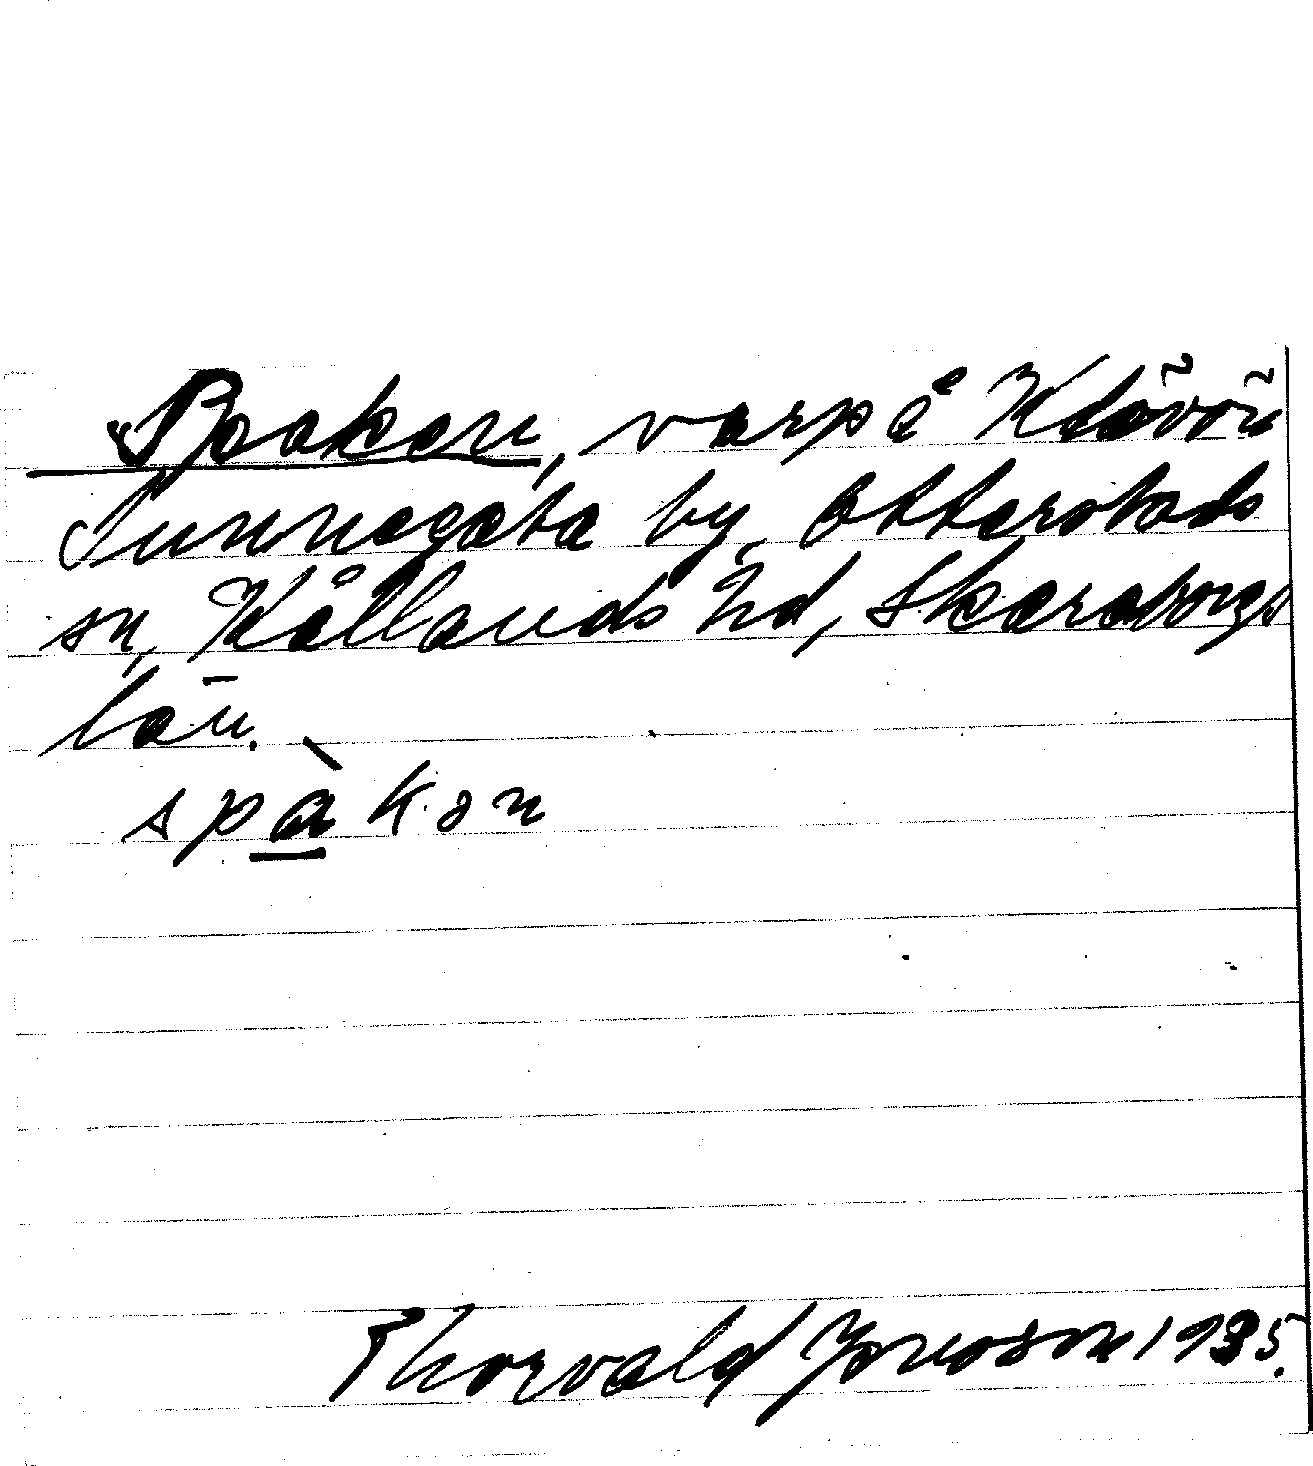 Spakan, varp å Klövön
Sunnegåta by, Otterstads
sn, Kållands hd, Skaraborgs
län.
spàkan
Thorvald Jonsson 1935.